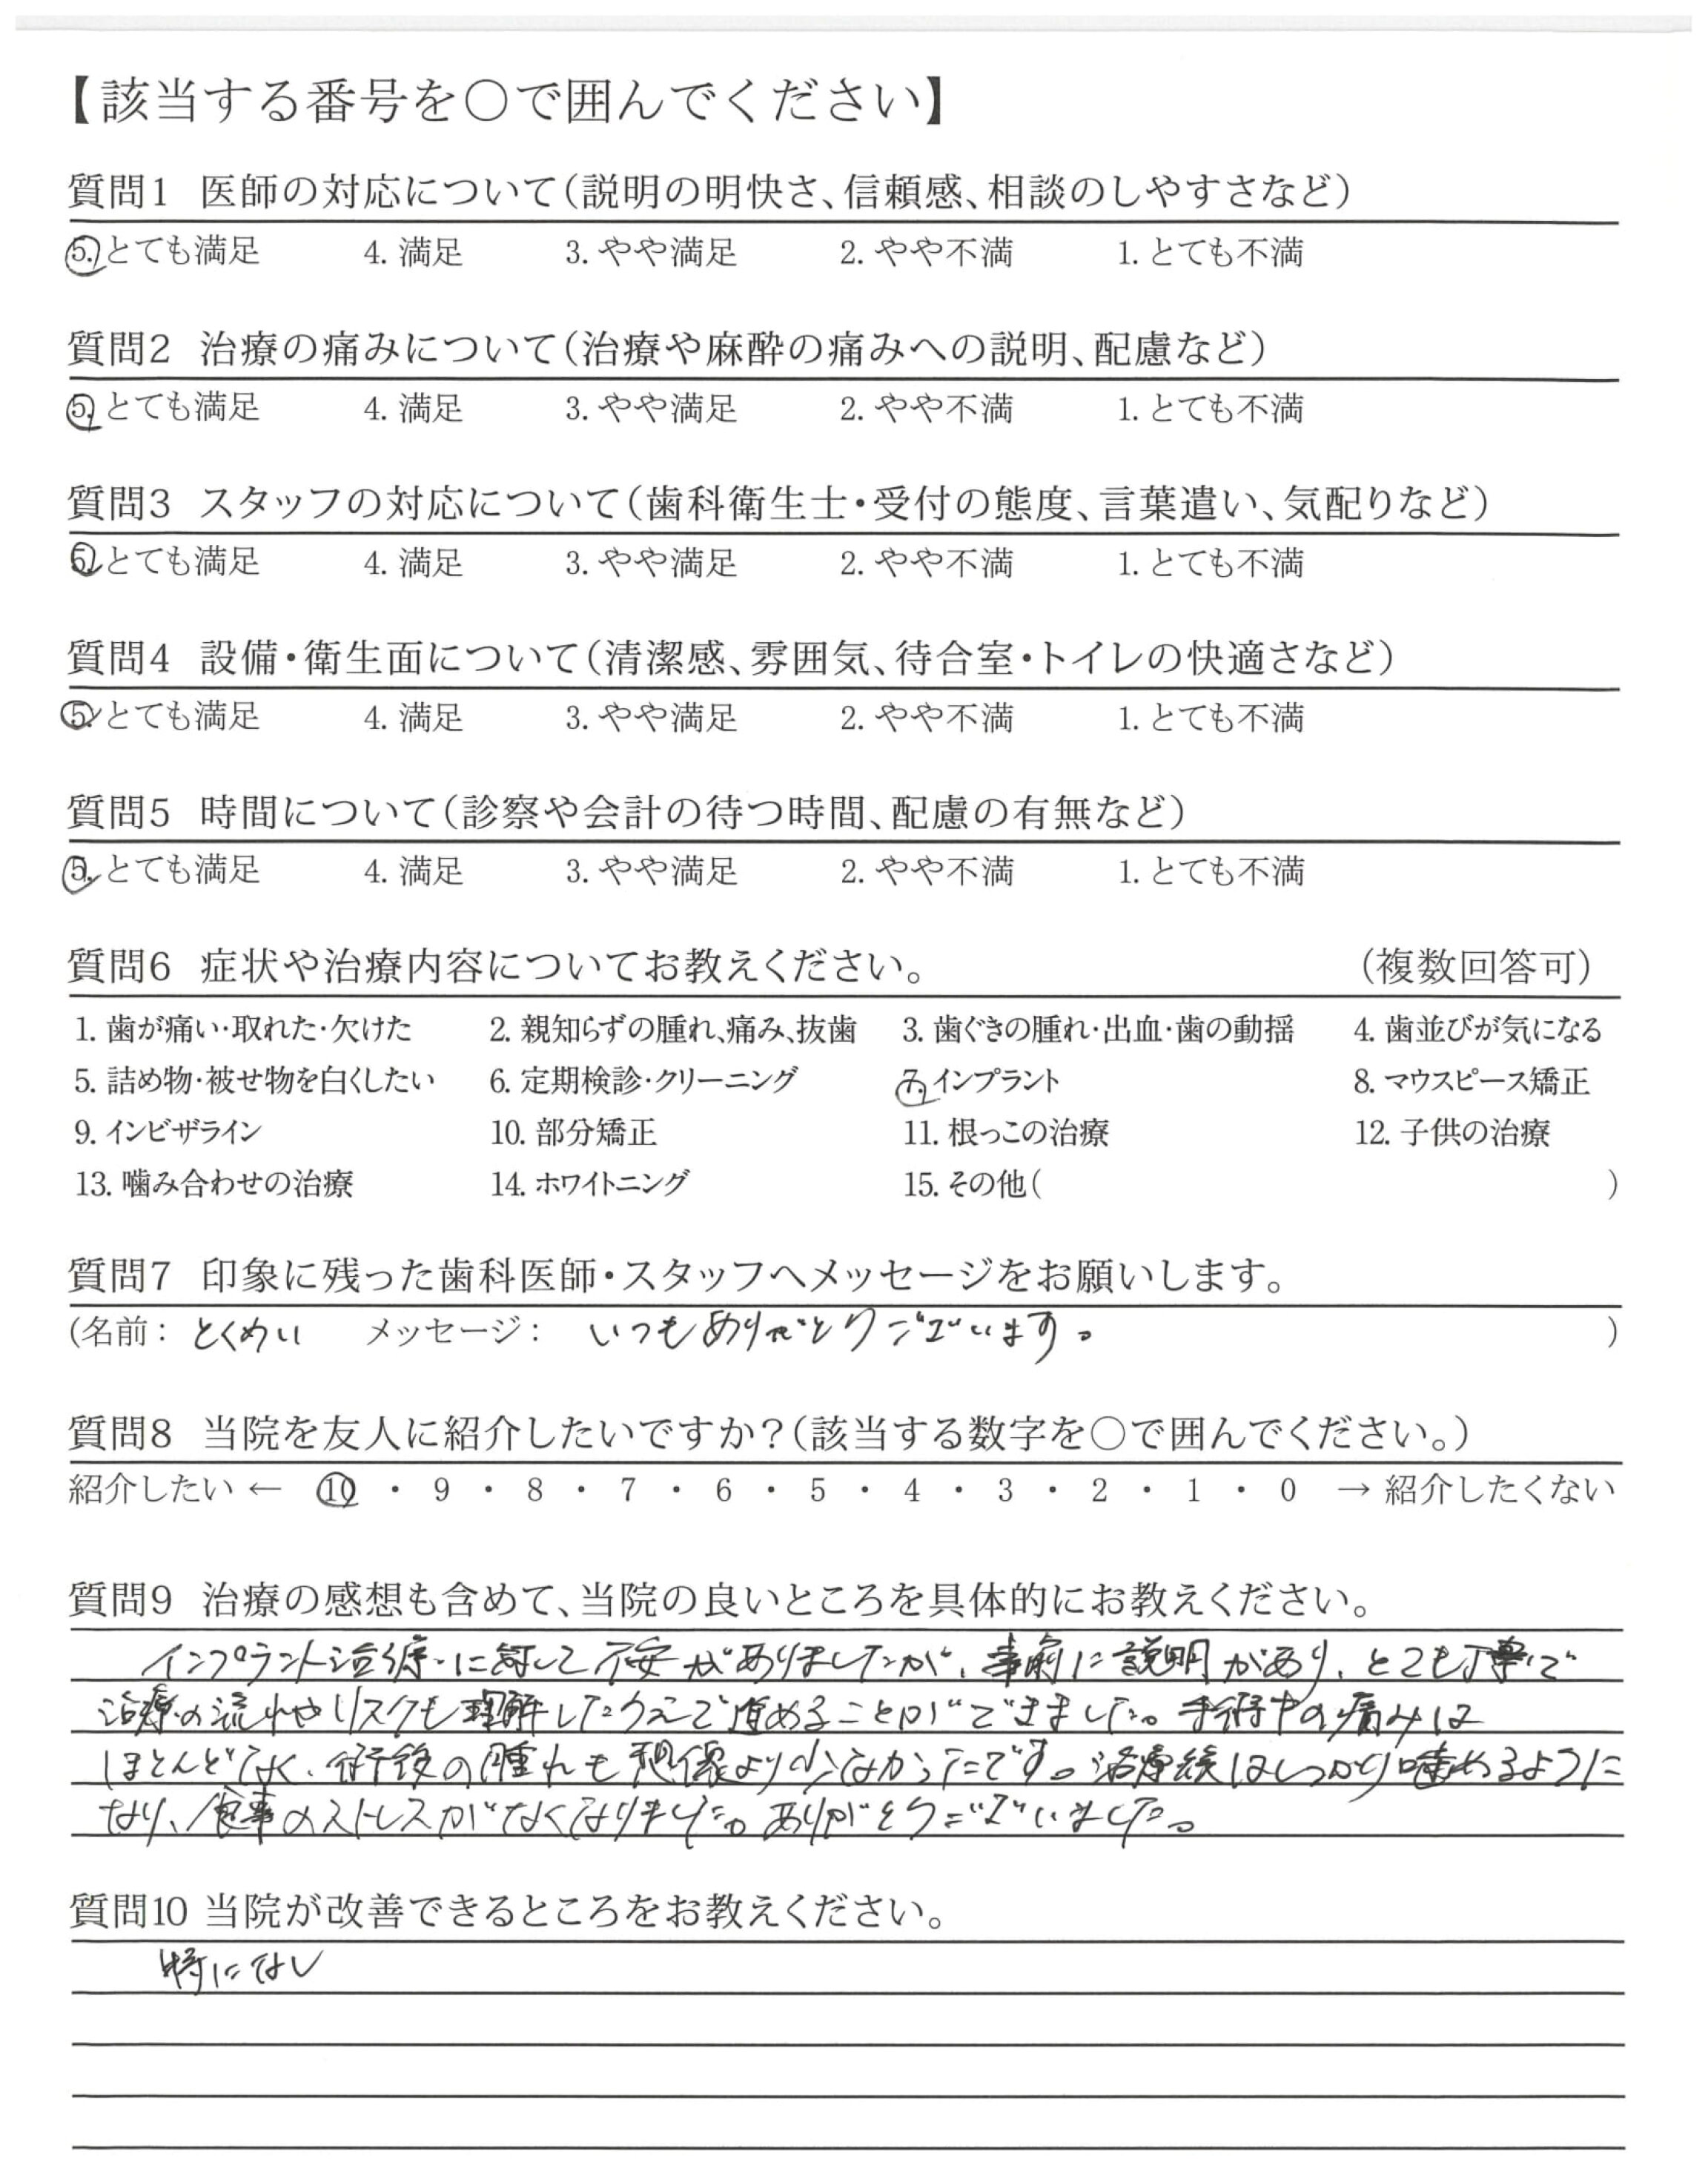 【該当する番号を○で囲んでください】
質問1 医師の対応について(説明の明快さ、信頼感、相談のしやすさなど)
5. とても満足 4. 満足 3. やや満足 2. やや不満 1. とても不満
質問2 治療の痛みについて(治療や麻酔の痛みへの説明、配慮など)
5. とても満足 4. 満足 3. やや満足 2. やや不満 1. とても不満
質問3 スタッフの対応について(歯科衛生士・受付の態度、言葉遣い、気配りなど)
5. とても満足 4. 満足 3. やや満足 2. やや不満 1. とても不満
質問4 設備・衛生面について(清潔感、雰囲気、待合室・トイレの快適さなど)
5. とても満足 4. 満足 3. やや満足 2. やや不満 1. とても不満
質問5 時間について(診察や会計の待つ時間、配慮の有無など)
5. とても満足 4. 満足 3. やや満足 2. やや不満 1. とても不満
質問6 症状や治療内容についてお教えください。 (複数回答可)
1. 歯が痛い・取れた・欠けた 2. 親知らずの腫れ、痛み、抜歯 3. 歯ぐきの腫れ・出血・歯の動揺 4. 歯並びが気になる
5. 詰め物・被せ物を白くしたい 6. 定期検診・クリーニング 7. インプラント 8. マウスピース矯正
9. インビザライン 10. 部分矯正 11. 根っこの治療 12. 子供の治療
13. 噛み合わせの治療 14. ホワイトニング 15. その他( )
質問7 印象に残った歯科医師・スタッフへメッセージをお願いします。
(名前: とくめい メッセージ: いつもありがとうございます。 )
質問8 当院を友人に紹介したいですか?(該当する数字を○で囲んでください。)
紹介したい ← 10 ・ 9 ・ 8 ・ 7 ・ 6 ・ 5 ・ 4 ・ 3 ・ 2 ・ 1 ・ 0 → 紹介したくない
質問9 治療の感想も含めて、当院の良いところを具体的にお教えください。
インプラント治療に対して不安がありましたが、事前に説明があり、とても丁寧で
治療の流れやリスクも理解したうえで進めることができました。手術中の痛みは
ほとんどなく、術後の腫れも想像より少なかったです。治療後はしっかり噛めるように
なり、食事のストレスがなくなりました。ありがとうございました。
質問10 当院が改善できるところをお教えください。
特になし